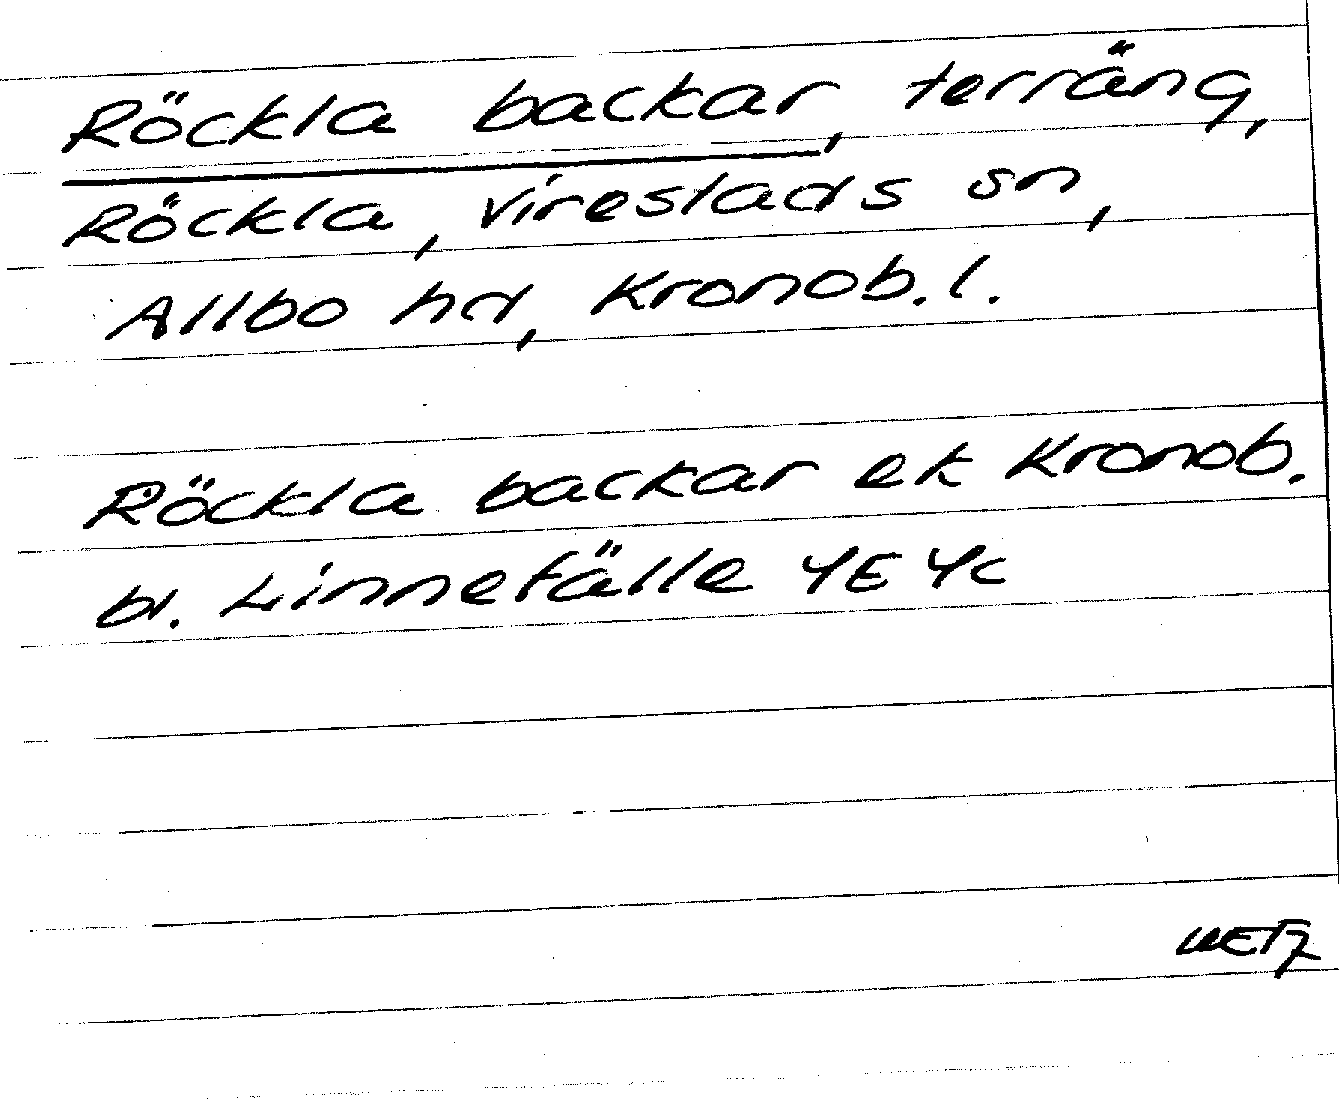 Röckla backar, terräng,
Röckla, Virestads sn,
Allbo hd, Kronob. l.
Röckla backar ek Kronob.
bl. Linnefälle 4E 4c